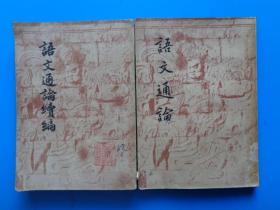 語文通論續編
語文通論